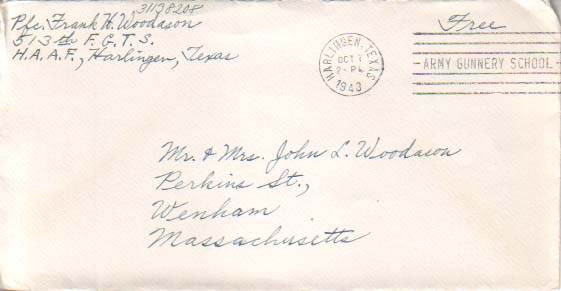 31128208
Pfc. Frank H. Woodason
513th F.G.T.S.
H.A.A.F., Harlingen, Texas
Free
HARLINGEN, TEXAS
OCT
1943
ARMY GUNNERY SCHOOL
Mr. & Mrs. John L. Woodason
Perkins St.,
Wenham
Massachusetts